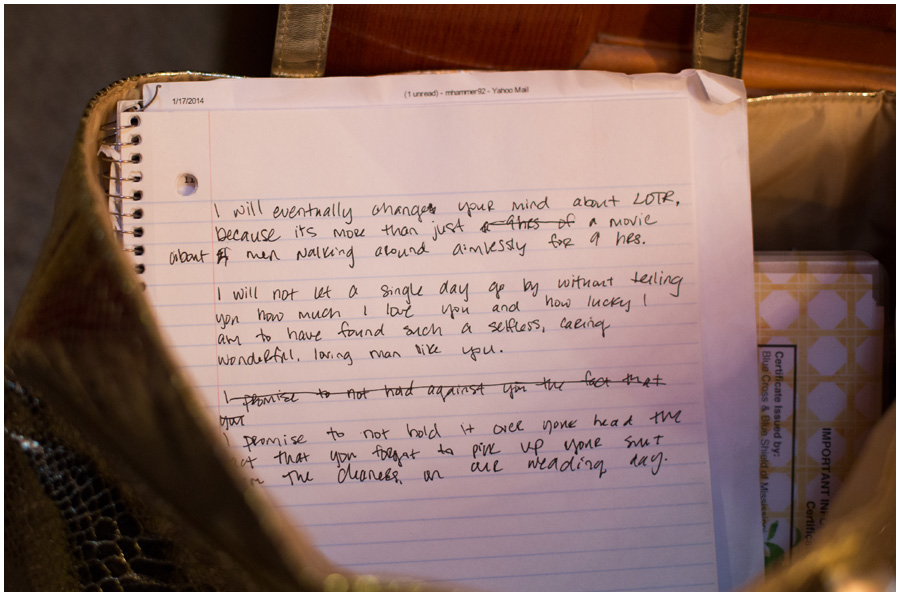 1/17/2014
(1 unread) - mhammer92 - Yahoo Mail
I will eventually change your mind about LOTR,
because its more than just a 9hrs of a movie
about men walking around aimlessly for 9 hrs.
I will not let a single day go by without telling
you how much I love you and how lucky I
am to have found such a selfless, caring
wonderful, loving man like you.
I promise to not had against you the fact that
you
I promise to not hold it over your head the
that you forgot to pick up your suit
the cleaners, on our wedding day.
Certificate Issued by:
Blue Cross & Blue Shield of
IMPORTANT